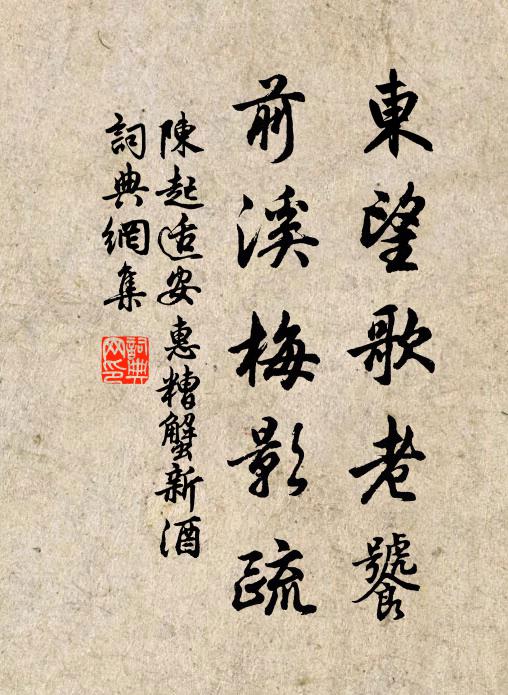 東望歌老饕
前溪梅影疏
陳起适安惠糟蟹新酒
詞典網集
詞典網印